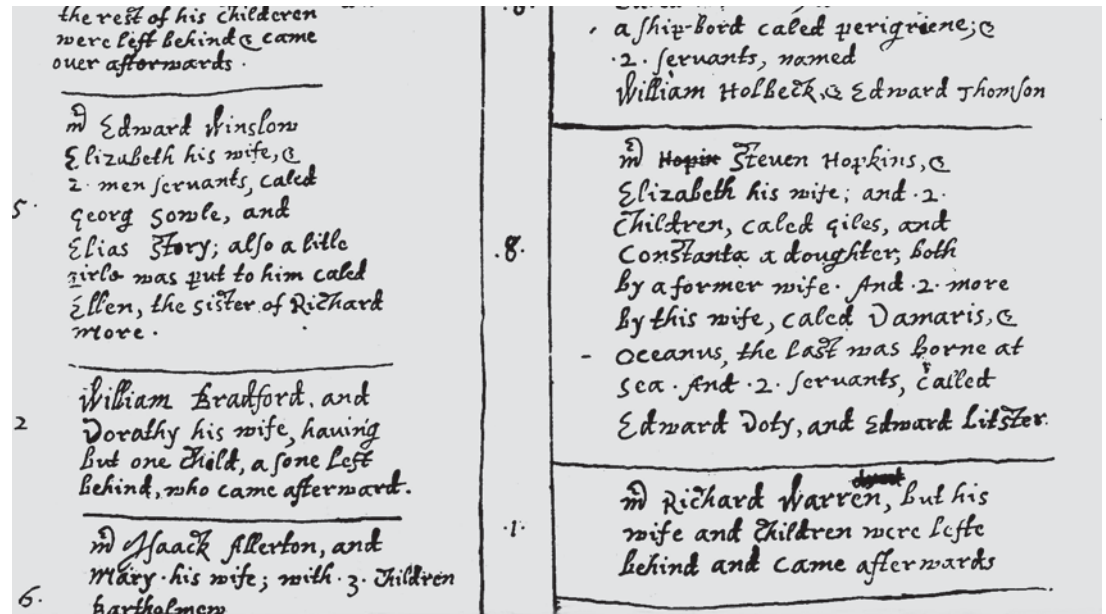 the rest of his children
were left behind & came
over afterwards.
mr Edward Winslow
Elizabeth his wife, &
2. men servants, caled
5.
Georg Sowle, and
Elias Story; also a litle
girle was put to him caled
Ellen, the sister of Richard
more.
William Bradford, and
2
Dorathy his wife, having
but one child, a sone left
behind, who came afterward.
mr Isaack Allerton, and
Mary his wife; with .3. children
6.
Bartholmew
a ship-bord caled perigriene; &
.2. servants, named
William Holbeck, & Edward Thomson
mr Hopin Steven Hopkins, &
Elizabeth his wife; and .2.
children, caled Giles, and
.8.
Constanta a doughter, both
by a former wife. And .2. more
by this wife, caled Damaris, &
- Oceanus, the last was borne at
sea. And .2. servants, called
Edward Doty, and Edward Litster.
mr Richard Warren, but his
.1.
wife and children were lefte
behind and came afterwards